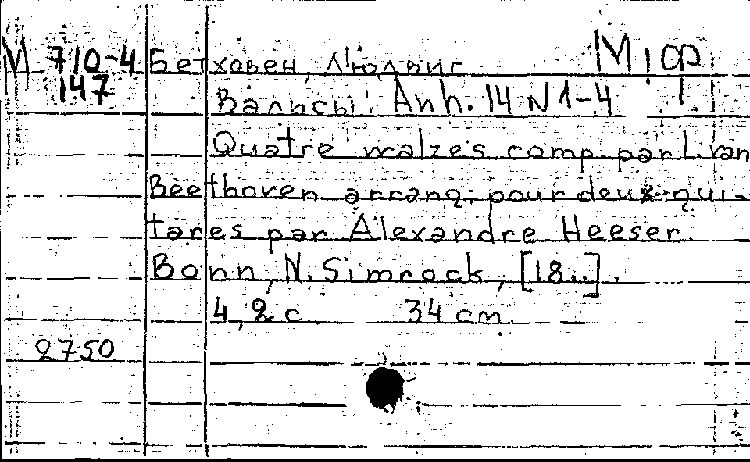 М 710-4 Бетховен, Людвиг М: ср
147 Вальсы. Anh. 14 N 1-4
Quatre walzes comp. par L. van
Beethoven arrang. pour deux gui-
tares par Alexandre Heeser.
Bonn, N. Simrock, [18..].
4, 2 с 34 cm
2750